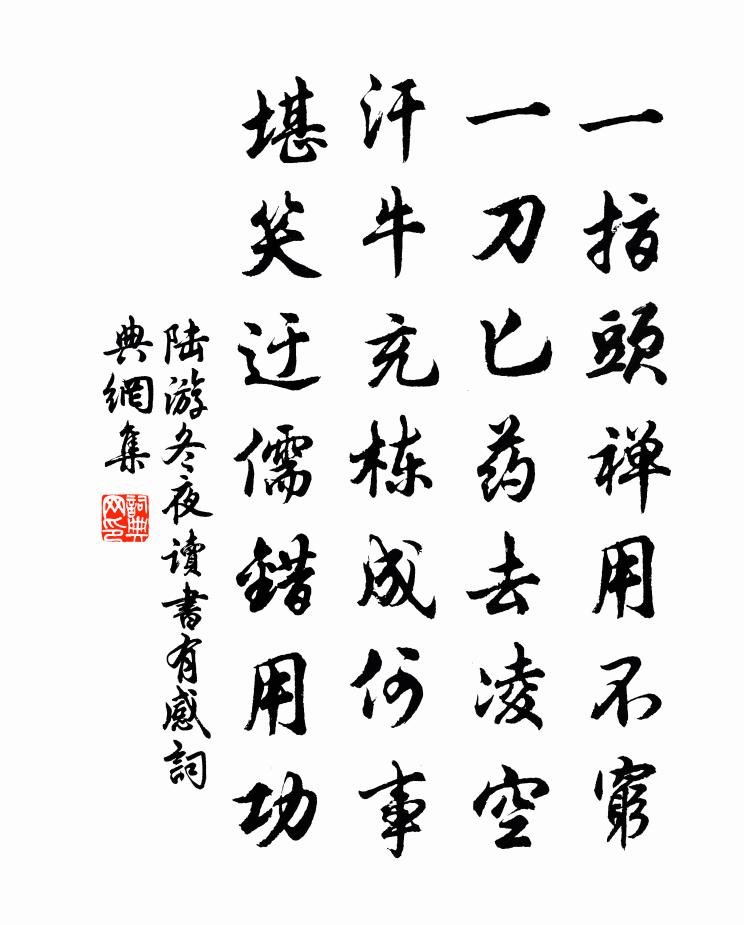 一指頭禅用不窮
一刀匕药去凌空
汗牛充栋成何事
堪笑迂儒錯用功
陆游冬夜讀書有感詞
典網集
詞典
网印